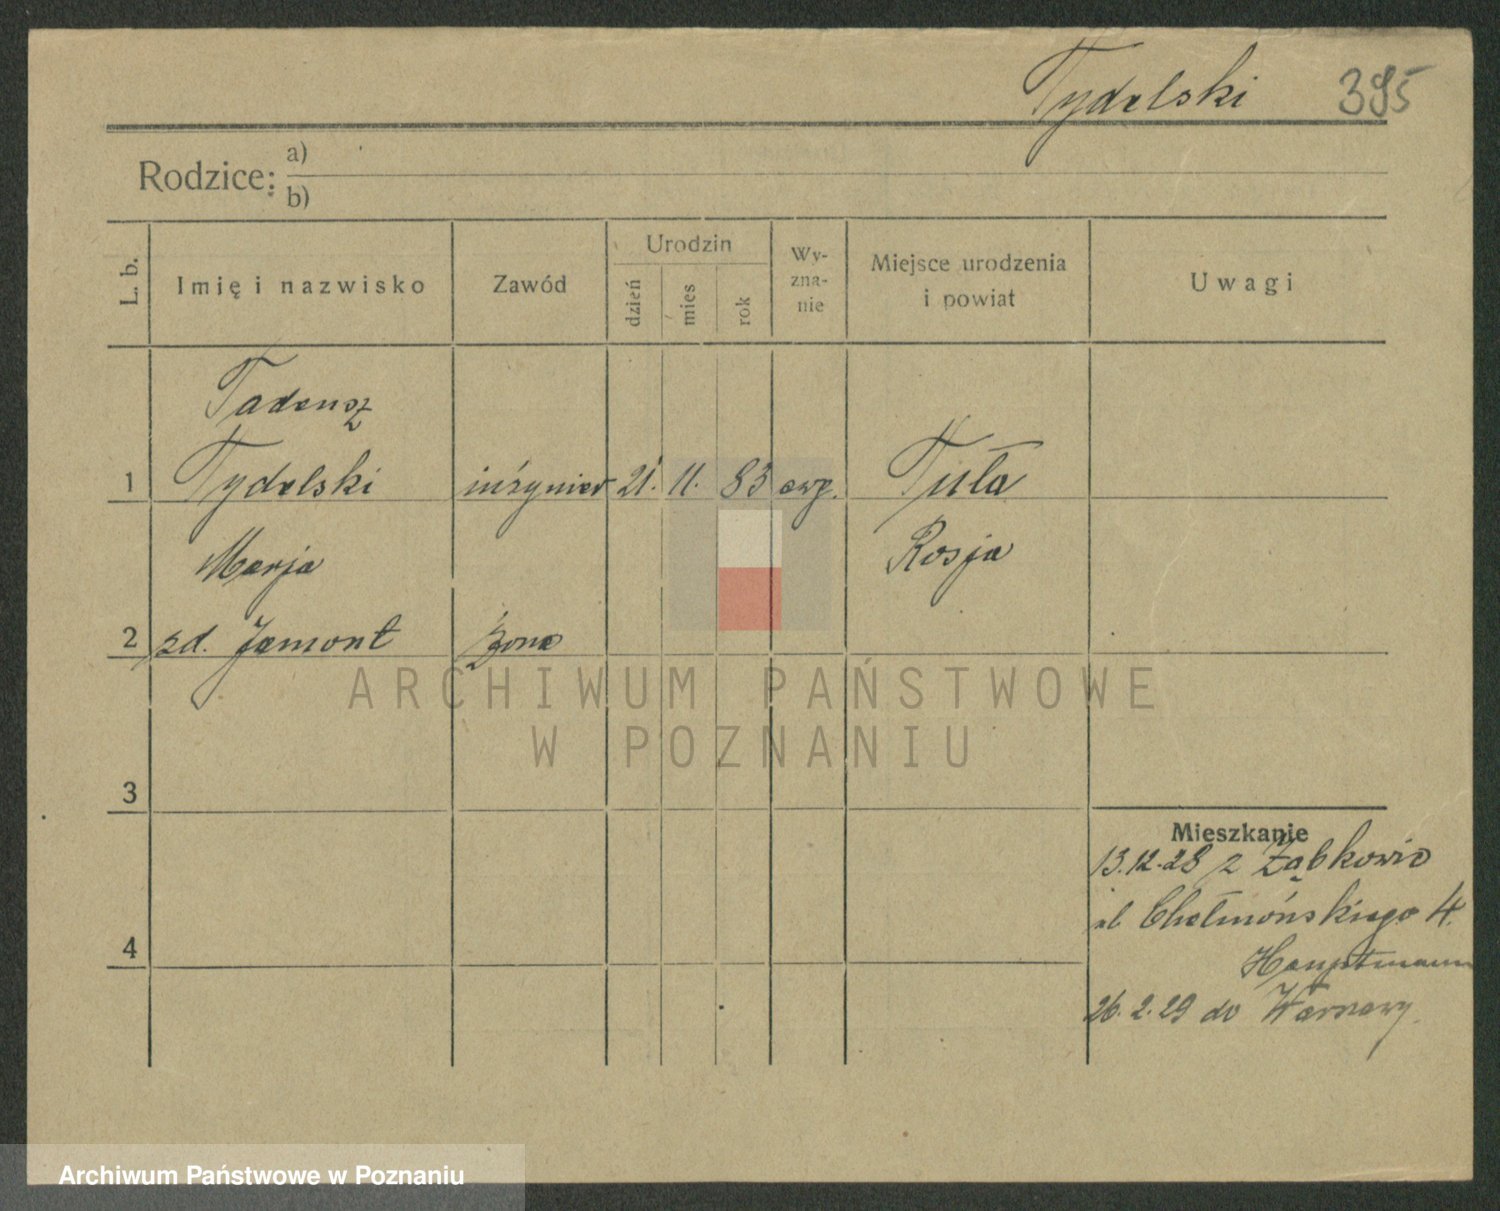 Tydelski 395
Rodzice: a)
b)
L. b. Imię i nazwisko Zawód Urodzin dzień mies rok Wy-zna-nie Miejsce urodzenia i powiat Uwagi
Tadeusz
1 Tydelski inżynier 21. 11. 83 ewg. Tuła
Marja Rosja
2 zd. Jamont żona
ARCHIWUM PAŃSTWOWE
W POZNANIU
3
Mieszkanie
13.12.28 z Ząbkowic
ul. Chełmońskiego 4.
4
Hauptmann
26.2.29 do Warszawy
Archiwum Państwowe w Poznaniu